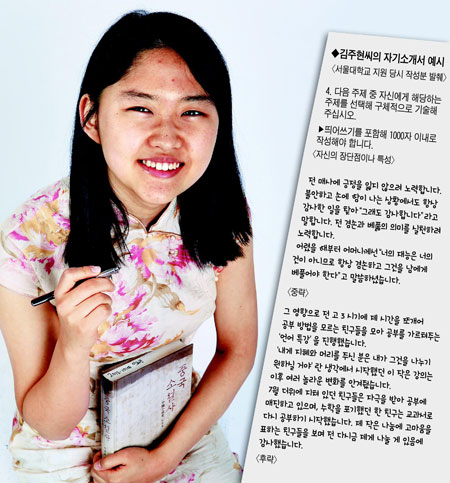 ◆김주현씨의 자기소개서 예시
<서울대학교 지원 당시 작성분 발췌>
4. 다음 주제 중 자신에게 해당하는
주제를 선택해 구체적으로 기술해
주십시오.
▶띄어쓰기를 포함해 1000자 이내로
작성해야 합니다.
<자신의 장단점이나 특성>
전 매사에 긍정을 잃지 않으려 노력합니다.
불안하고 손에 땀이 나는 상황에서도 항상
감사할 일을 찾아 "그래도 감사합니다"라고
말합니다. 전 겸손과 베풂의 의미를 실천하려
노력합니다.
어렸을 때부터 어머니께선 "너의 재능은 너의
것이 아니므로 항상 겸손하고 그것을 남에게
베풀어야 한다"고 말씀하셨습니다.
<중략>
그 영향으로 전 고 3 시기에 제 시간을 쪼개어
공부 방법을 모르는 친구들을 모아 공부를 가르쳐주는
'언어 특강'을 진행했습니다.
'내게 지혜와 머리를 두신 분은 내가 그것을 나누기
원하실 거야'란 생각에서 시작했던 이 작은 강의는
이후 여러 놀라운 변화를 안겨줬습니다.
7월 더위에 지쳐 있던 친구들은 자극을 받아 공부에
매진하고 있으며, 수학을 포기했던 한 친구는 교과서로
다시 공부하기 시작했습니다. 제 작은 나눔에 고마움을
표하는 친구들을 보며 전 다시금 제게 나눌 게 있음에
감사했습니다.
<후략>
중국
소설사